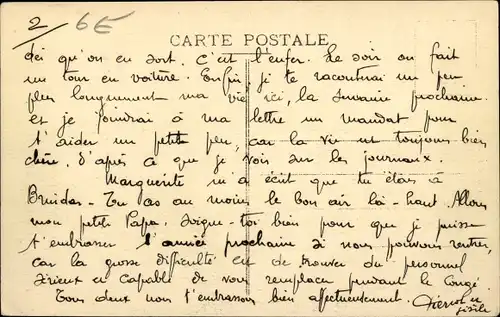 2/ 6E
CARTE POSTALE
dei qu'on en sort, c'est l'enfer. Le soir on fait
un tour en voiture. Enfin, je te raconterai un peu
plus longuement ma vie ici, la semaine prochaine
et je joindrai à ma lettre un mandat pour
t'aider un petit peu, car la vie est toujours bien
chère, d'après ce que je vois sur les journaux.
Marguerite m'a écrit que tu étais à
Tu as au moins le bon air là-haut. Allons
mon petit Papa, soigne-toi bien pour que je puisse
t'embrasser l'année prochaine si nous pouvons rentrer,
car la grosse difficulté est de trouver du personnel
sérieux et capable de nous remplacer pendant le congé.
Tous deux nous t'embrassons bien affectueusement.